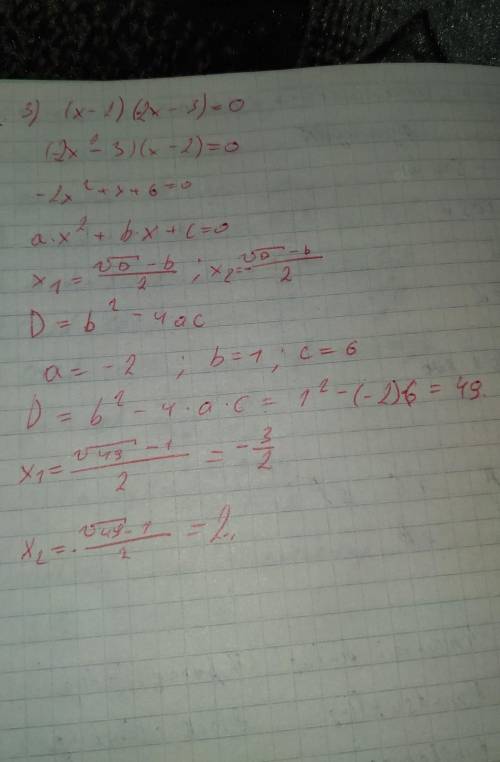 3) (x-2)(-2x-3)=0
(-2x-3)(x-2)=0
-2x²+x+6=0
a·x²+b·x+c=0
x₁=(√D-b)/2; x₂=-(√D-b)/2
D=b²-4ac
a=-2; b=1; c=6
D=b²-4·a·c=1²-(-2)6=49.
x₁=(√49-1)/2=-3/2
x₂=-(√49-1)/2=2.